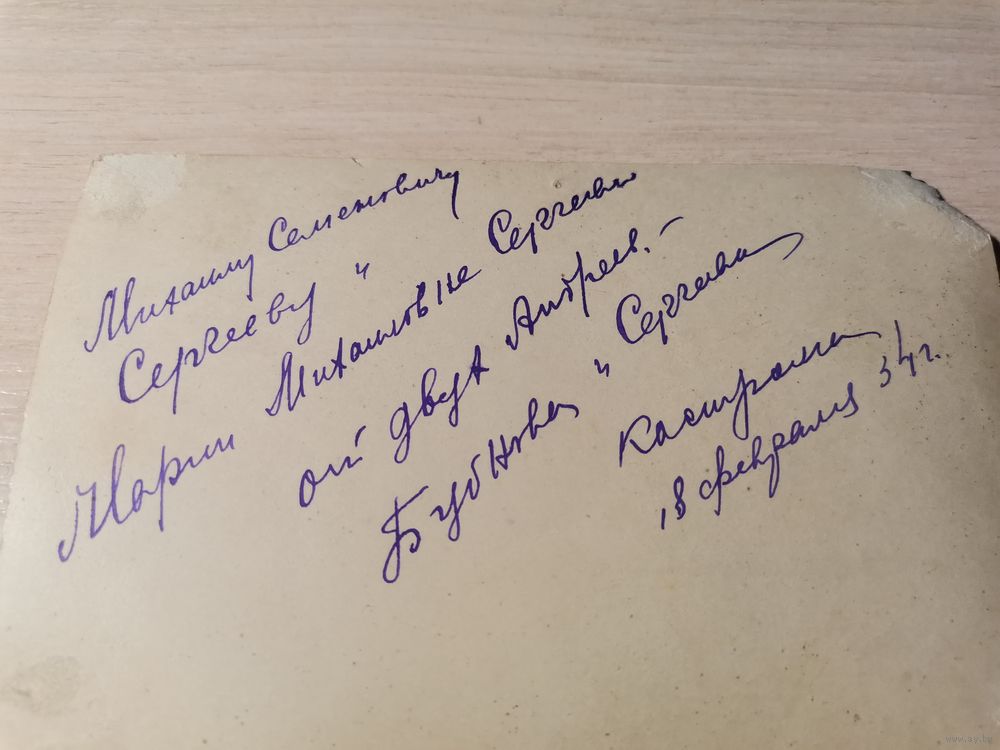 Михаилу Семеновичу
Сергееву и
Марии Михайловне Сергеевой
от двух Андреев. –
Бубнова и Сергеева
Кострома
18 февраля 34 г.
www.ay.by